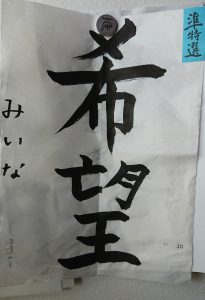 準特選
希望
みいな